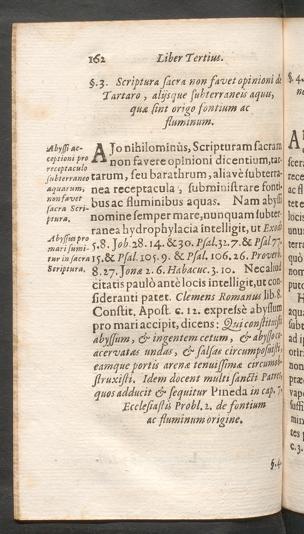 162 Liber Tertius.
§.3. Scriptura sacra non favet opinioni de
Tartaro, alijsque subterraneis aquis,
quæ sint origo fontium ac
fluminum.
Abyssi ac-
ceptioni pro
receptaculo
subterraneo
aquarum,
non favet
sacra Scri-
ptura.
Abyssus pro
mari sumi-
tur in sacra
Scriptura.
AJo nihilominùs, Scripturam sacram
non favere opinioni dicentium, tar-
tarum, seu barathrum, aliavè subterra-
nea receptacula, subministrare fonti-
bus ac fluminibus aquas. Nam abyssi
nomine semper mare, nunquam subter-
ranea hydrophylacia intelligit, ut Exod.
5.8. Job. 28.14. &30. Psal. 32.7. & Psal 77.
15. & Psal. 105.9. & Psal. 106.26. Proverb.
8.27. Jonæ 2.6. Habacuc. 3.10. Nec aliud
citatis paulò antè locis intelligit, ut con-
sideranti patet. Clemens Romanus lib. 8.
Constit. Apost. c. 12. expressè abyssum
pro mari accipit, dicens: Qui constituisti
abyssum, & ingentem cetum, & abysso co-
acervatas undas, & salsas circumposuisti,
eamque portis arenæ tenuissimæ circum-
struxisti. Idem docent multi sancti Patres,
quos adducit & sequitur Pineda in cap. 7.
Ecclesiastis Probl. 2. de fontium
ac fluminum origine.
§.4.